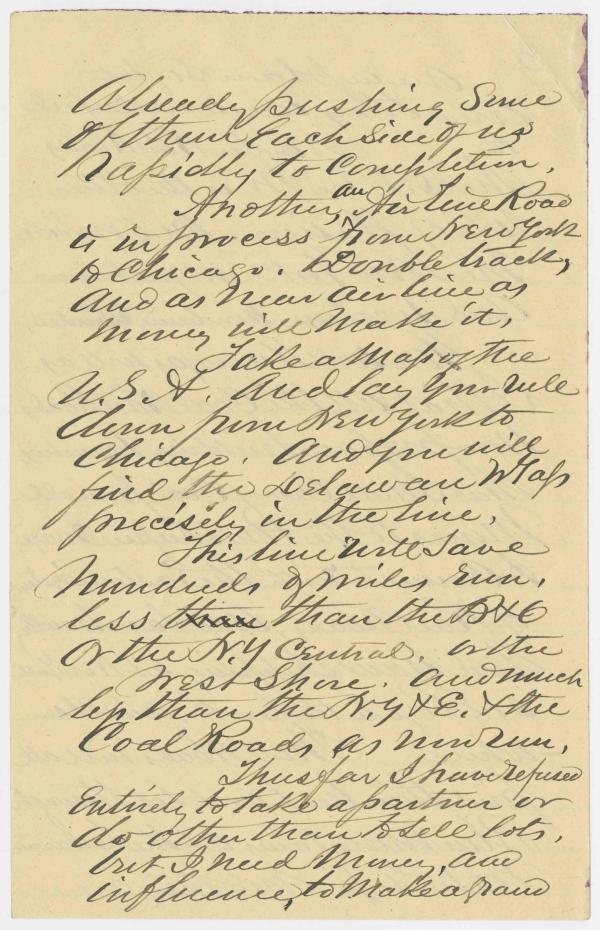 Already pushing Some
of them Each Side of us
rapidly to Completion.
Another, an Air Line Road
is in process from New York
to Chicago. Double track,
And as near air line as
Money will Make it,
Take a Map of the
U.S.A. And lay your rule
down from New York to
Chicago. And you will
find the Delaware W Gap
precisely in the line.
This line will Save
hundreds of miles run,
less than than the B & O
or the N.Y Central. or the
West Shore. and much
less than the N.Y & E. & the
Coal Roads as now run.
Thus far I have refused
Entirely to take a partner or
do other than to sell lots,
but I need Money, and
influence, to Make a grand